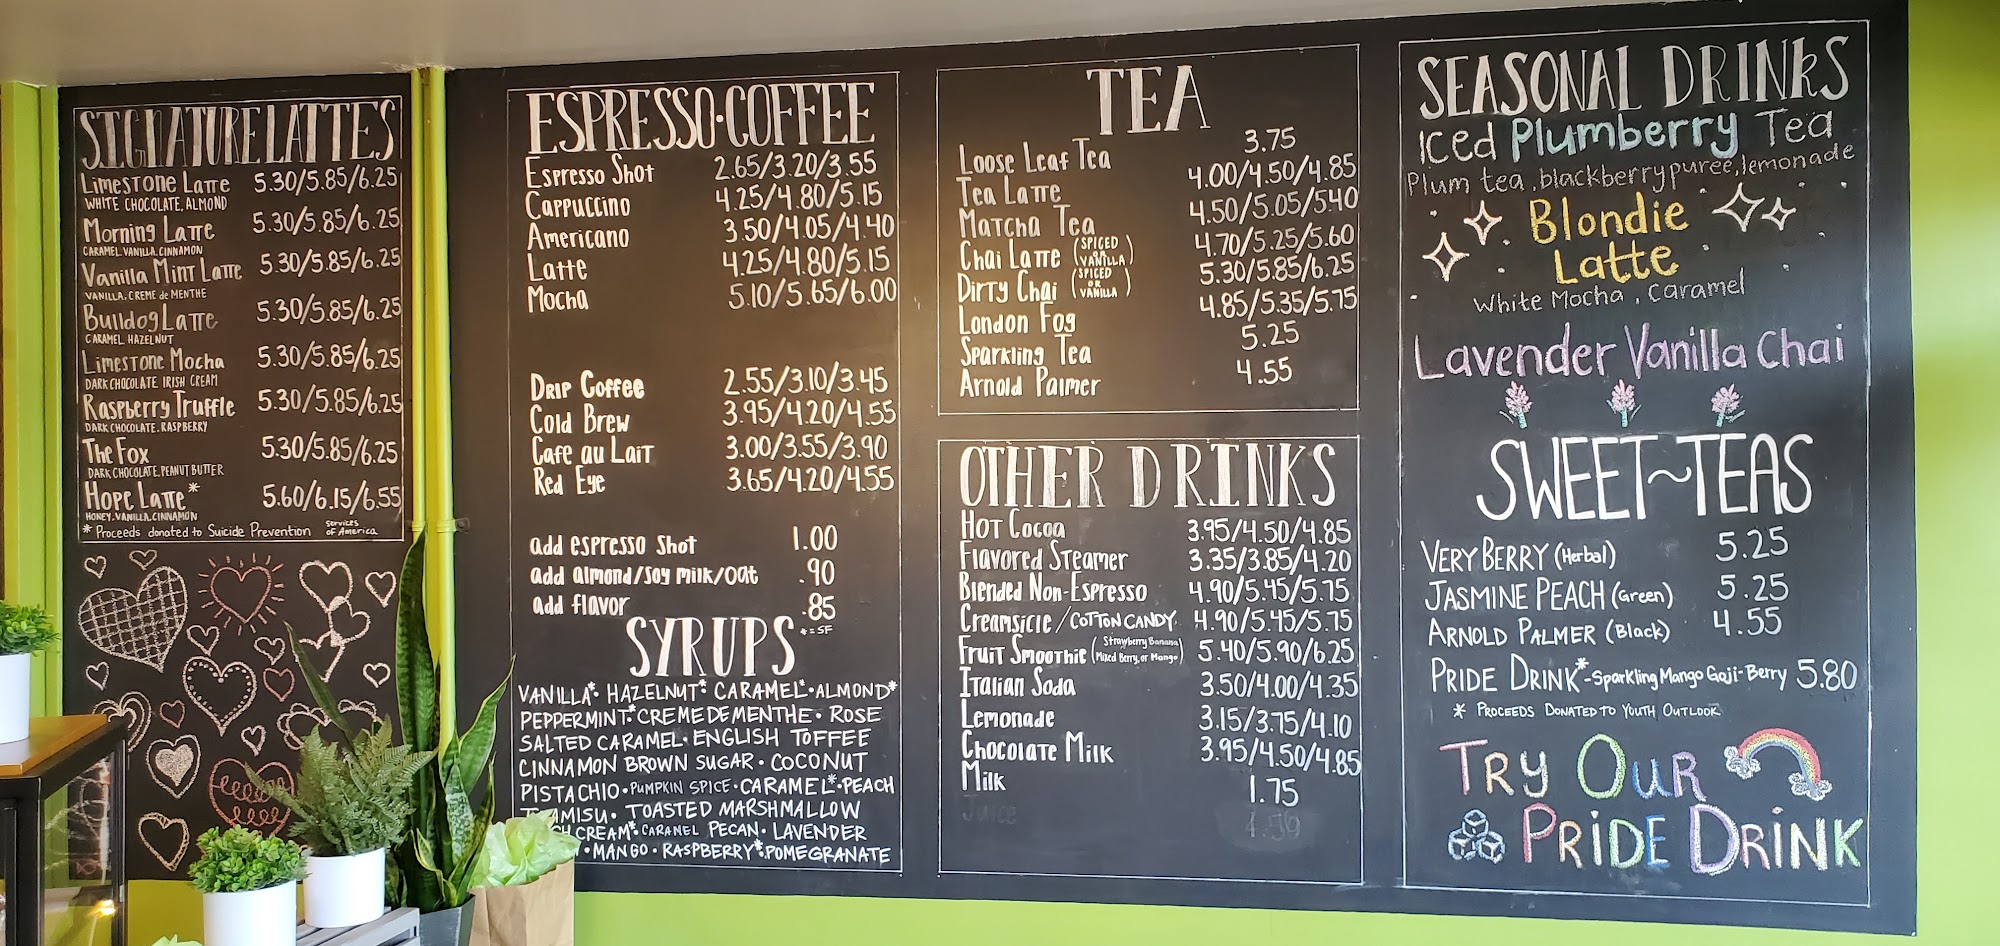 SIGNATURE LATTES
Limestone Latte 5.30/5.85/6.25
WHITE CHOCOLATE, ALMOND
Morning Latte 5.30/5.85/6.25
CARAMEL, VANILLA, CINNAMON
Vanilla Mint Latte 5.30/5.85/6.25
VANILLA, CREME de MENTHE
Bulldog Latte 5.30/5.85/6.25
CARAMEL HAZELNUT
Limestone Mocha 5.30/5.85/6.25
DARK CHOCOLATE IRISH CREAM
Raspberry Truffle 5.30/5.85/6.25
DARK CHOCOLATE, RASPBERRY
The Fox 5.30/5.85/6.25
DARK CHOCOLATE, PEANUT BUTTER
Hope Latte* 5.60/6.15/6.55
HONEY, VANILLA, CINNAMON
* Proceeds donated to Suicide Prevention Services of America
ESPRESSO·COFFEE
Espresso Shot 2.65/3.20/3.55
Cappuccino 4.25/4.80/5.15
Americano 3.50/4.05/4.40
Latte 4.25/4.80/5.15
Mocha 5.10/5.65/6.00
Drip Coffee 2.55/3.10/3.45
Cold Brew 3.95/4.20/4.55
Cafe au Lait 3.00/3.55/3.90
Red Eye 3.65/4.20/4.55
add espresso shot 1.00
add almond/soy milk/oat .90
add flavor .85
SYRUPS *=SF
VANILLA*· HAZELNUT*· CARAMEL*·ALMOND*
PEPPERMINT*·CREME DE MENTHE · ROSE
SALTED CARAMEL· ENGLISH TOFFEE
CINNAMON BROWN SUGAR · COCONUT
PISTACHIO·PUMPKIN SPICE·CARAMEL*·PEACH
TOASTED MARSHMALLOW
CREAM*·CARAMEL PECAN· LAVENDER
·MANGO·RASPBERRY*·POMEGRANATE
TEA
Loose Leaf Tea 3.75
Tea Latte 4.00/4.50/4.85
Matcha Tea 4.50/5.05/5.40
Chai Latte (SPICED OR VANILLA) 4.70/5.25/5.60
Dirty Chai (SPICED OR VANILLA) 5.30/5.85/6.25
London Fog 4.85/5.35/5.75
Sparkling Tea 5.25
Arnold Palmer 4.55
OTHER DRINKS
Hot Cocoa 3.95/4.50/4.85
Flavored Steamer 3.35/3.85/4.20
Blended Non-Espresso 4.90/5.45/5.75
Creamsicle/COTTON CANDY 4.90/5.45/5.75
Fruit Smoothie (Strawberry Banana, Mixed Berry, or Mango) 5.40/5.90/6.25
Italian Soda 3.50/4.00/4.35
Lemonade 3.15/3.75/4.10
Chocolate Milk 3.95/4.50/4.85
Milk 1.75
Juice
SEASONAL DRINKS
Iced Plumberry Tea
Plum tea, blackberry puree, lemonade
Blondie
Latte
White Mocha, Caramel
Lavender Vanilla Chai
SWEET~TEAS
VERY BERRY (Herbal) 5.25
JASMINE PEACH (Green) 5.25
ARNOLD PALMER (Black) 4.55
PRIDE DRINK*-Sparkling Mango Goji-Berry 5.80
* PROCEEDS DONATED TO YOUTH OUTLOOK
TRY OUR
PRIDE DRINK